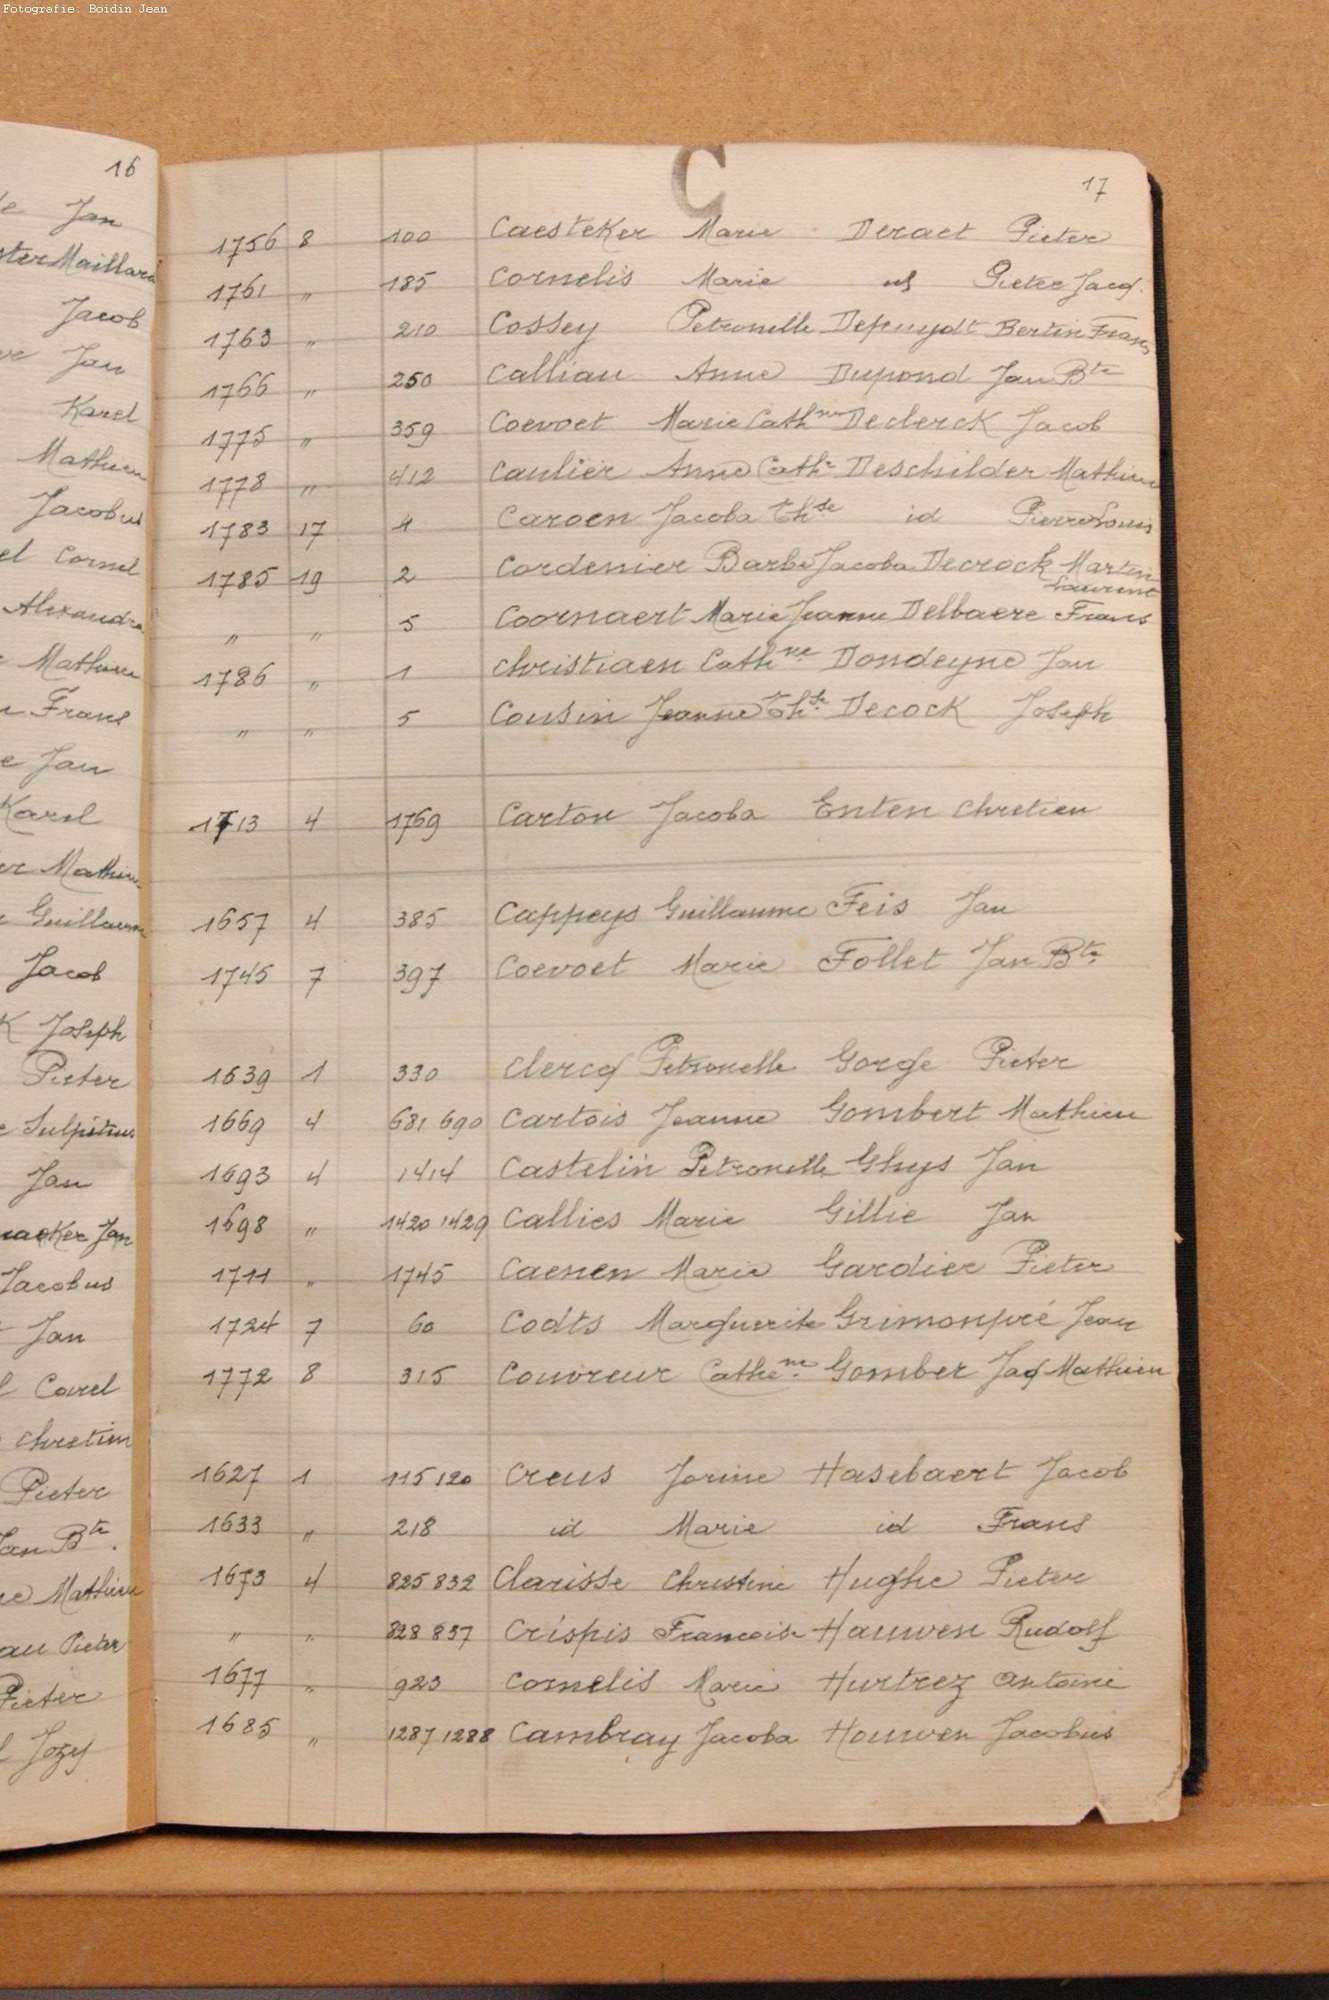 Fotografie: Boidin Jean
16
Jan
Maillard
Jacob
Jan
Karel
Mathieu
Jacobus
Cornel
Alexandre
Mathieu
Frans
Jan
Karel
Mathieu
Guillaume
Jacob
Joseph
Pieter
Sulpitius
Jan
Jan
Jacobus
Jan
Carel
Chretien
Pieter
Jan Bte.
Mathieu
Pieter
Pieter
Jozef
C
17
1756 8 100 Caesteker Marie Deraet Pieter
1761 " 185 Cornelis Marie id Pieter Jacq.
1763 " 210 Cossey Petronelle Depuydt Bertin Frans
1766 " 250 Calliau Anne Dupond Jan Bte
1775 " 359 Coevoet Marie Cathne Declerck Jacob
1778 " 412 Caulier Anne Cathe Deschilder Mathieu
1783 17 4 Caroen Jacoba Thse id Pierre Louis
1785 19 2 Cordenier Barbe Jacoba Decrock Martin
Laurent
" " 5 Coornaert Marie Jeanne Delbaere Frans
1786 " 1 Christiaen Cathne Dondeyne Jan
" " 5 Cousin Jeanne Thse Decock Joseph
1713 4 1769 Carton Jacoba Enten Chretien
1657 4 385 Cappeys Guillaume Feis Jan
1745 7 397 Coevoet Marie Follet Jan Bte
1639 1 330 Clercq Petronelle Gorge Pieter
1669 4 681 690 Cartois Jeanne Gombert Mathieu
1693 4 1414 Castelin Petronelle Ghys Jan
1698 " 1420 1429 Callies Marie Gillie Jan
1711 " 1745 Caenen Marie Gardier Pieter
1724 7 60 Codts Marguerite Grimonpré Jean
1772 8 315 Couvreur Cathene Gomber Jaq Mathieu
1627 1 115 120 Creus Jorine Hasebaert Jacob
1633 " 218 id Marie id Frans
1673 4 825 832 Clarisse Christine Hughe Pieter
" " 828 837 Crispis Francoise Hauwen Rudolf
1677 " 923 Cornelis Marie Hurtrez Antoine
1685 " 1287 1288 Cambray Jacoba Houwen Jacobus